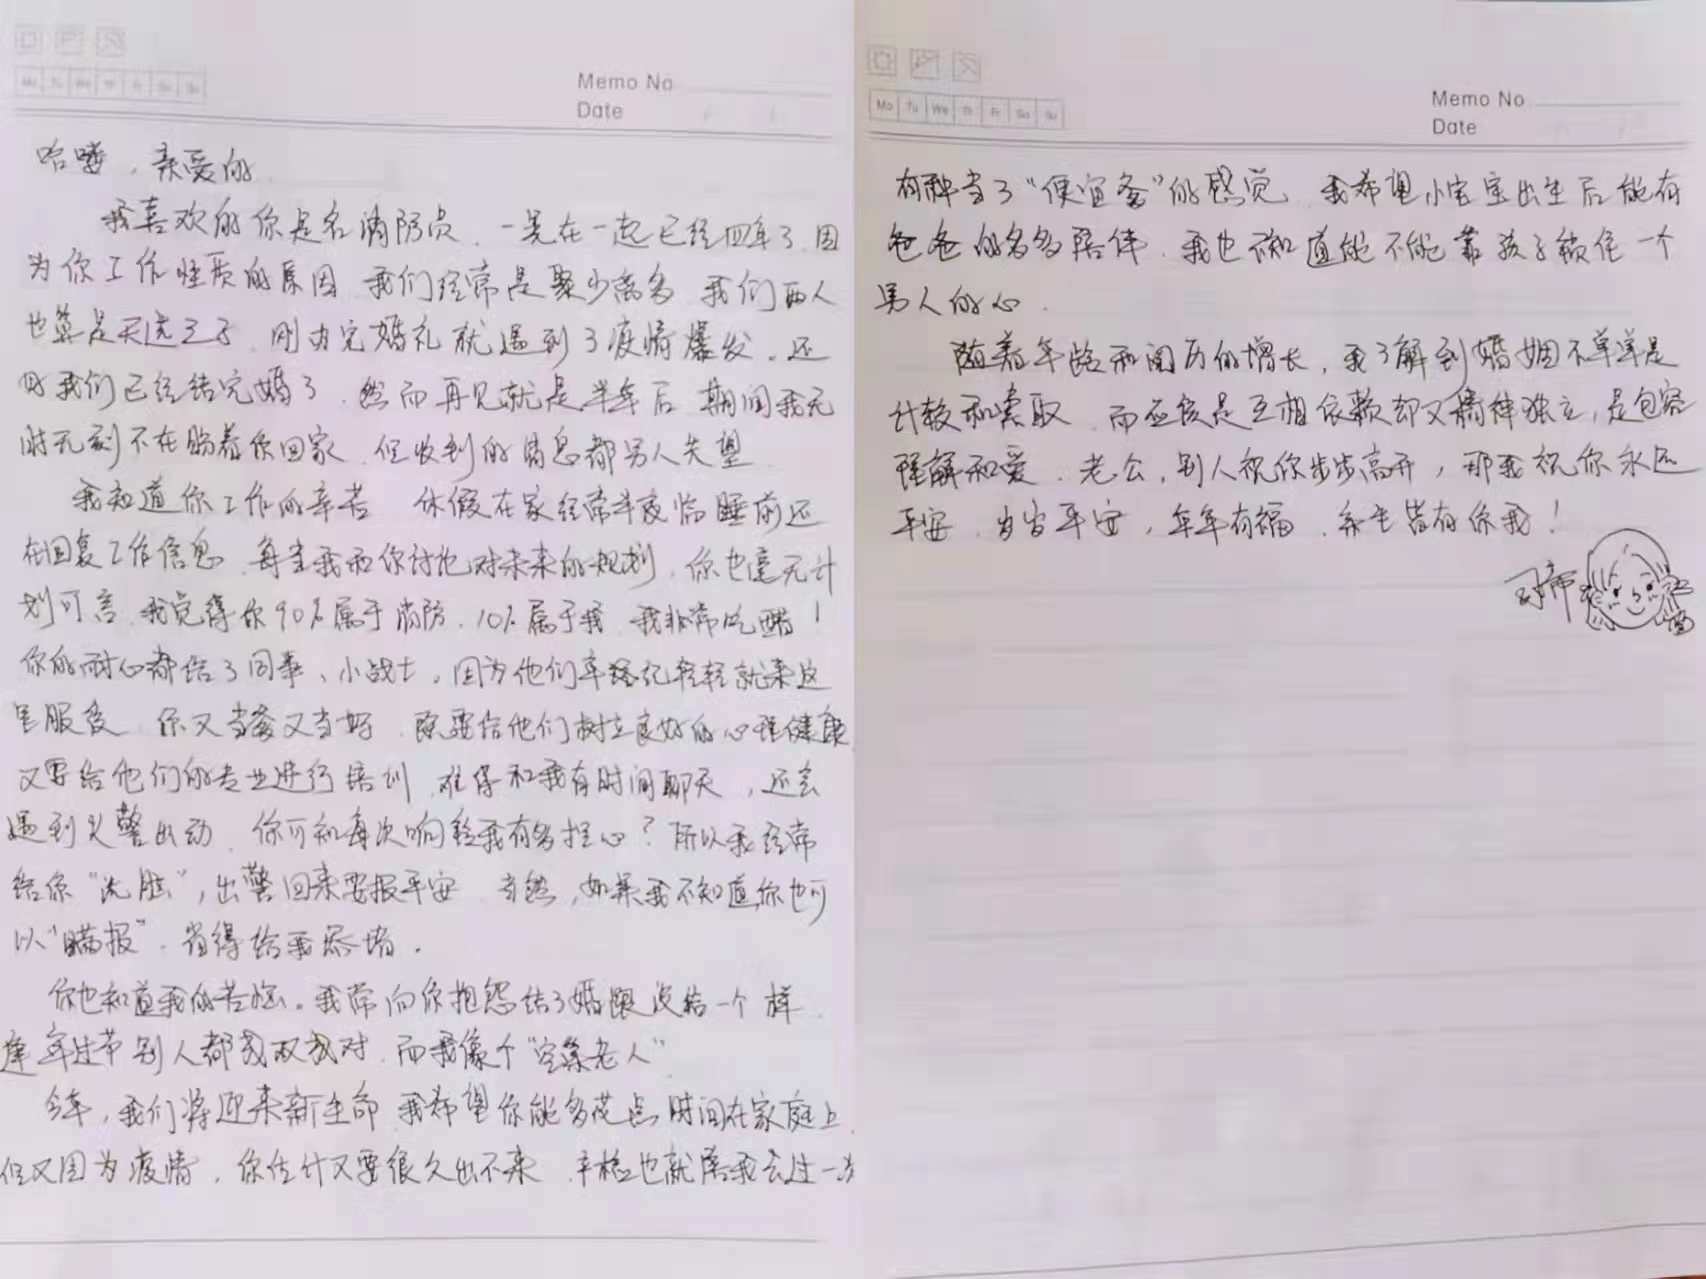 Mo Tu We Th Fr Sa Su
Memo No
Date
哈喽，亲爱的
我喜欢的你是名消防员，一晃在一起已经四年了，因
为你工作性质的原因，我们经常是聚少离多，我们两人
也算是天选之子，刚办完婚礼就遇到了疫情爆发。还
好我们已经结完婚了，然而再见就是半年后，期间我无
时无刻不在盼着你回家，但收到的消息都另人失望
我知道你工作的辛苦，休假在家经常半夜临睡前还
在回复工作信息，每当我和你讨论对未来的规划，你也毫无计
划可言，我觉得你90%属于消防，10%属于我，我非常吃醋！
你的耐心都给了同事、小战士，因为他们年纪轻轻就来这
里服役，你又当爹又当妈，既要给他们树立良好的心理健康
又要给他们的专业进行培训，难得和我有时间聊天，还会
遇到火警出动，你可知每次响铃我有多担心？所以我经常
给你“洗脑”，出警回来要报平安，当然，如果我不知道，你也可
以“瞒报”，省得给我添堵。
你也知道我的苦恼。我常向你抱怨结了婚跟没结一个样，
逢年过节别人都成双成对，而我像个“空巢老人”
今年，我们将迎来新生命，我希望你能多花点时间在家庭上，
但又因为疫情，你估计又要很久出不来，产检也就陪我去过一次
Mo Tu We Th Fr Sa Su
Memo No
Date
有种当了“便宜爹”的感觉，我希望小宝宝出生后能有
爸爸的多多陪伴，我也不知道能不能靠孩子锁住一个
男人的心。
随着年龄和阅历的增长，我了解到婚姻不单单是
计较和索取，而应该是互相依赖却又精神独立，是包容
理解和爱，老公，别人祝你步步高升，那我祝你永远
平安，岁岁平安，年年有福，余生皆有你我！